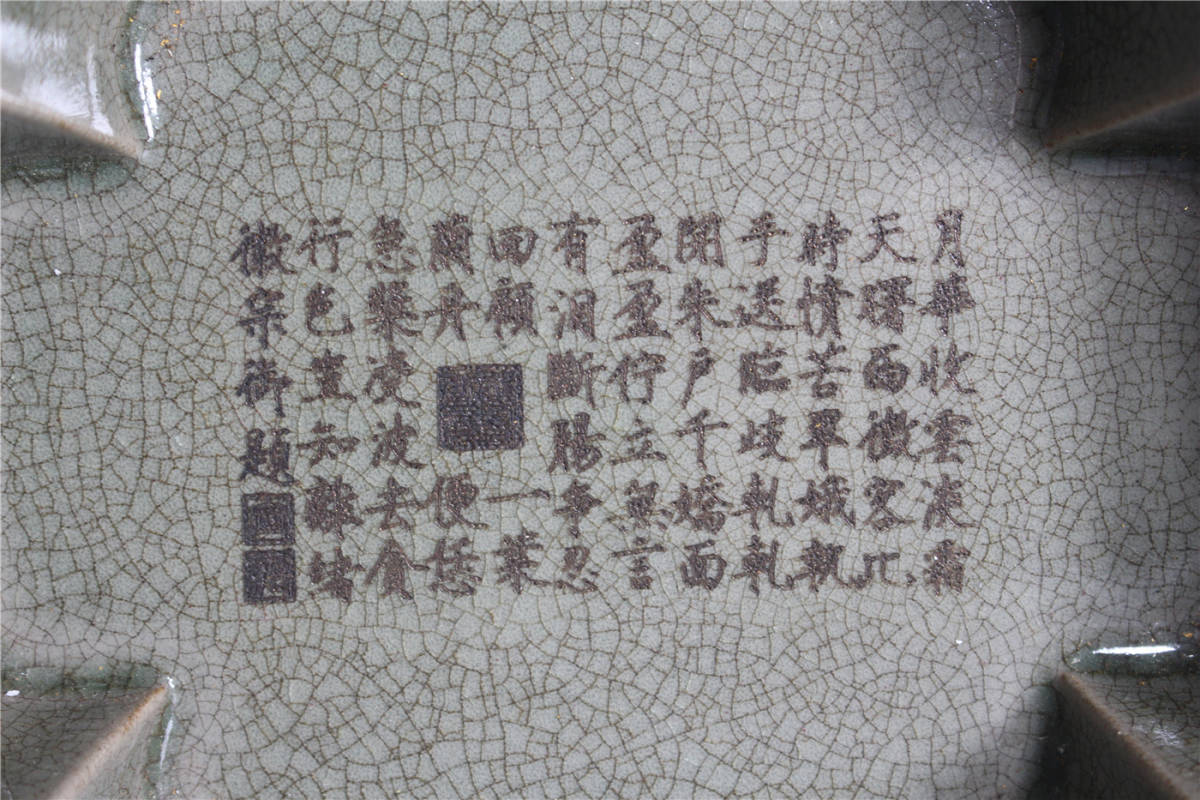 月華收雲淡霜
天曙西微客此
時情苦翠娥執
手送臨歧軋軋
開朱戶千嬌面
盈盈佇立無言
有泪斷腸爭忍
回顧一葉
蘭舟便恁
急槳凌波去貪
行色豈知離緒
徽宗御題